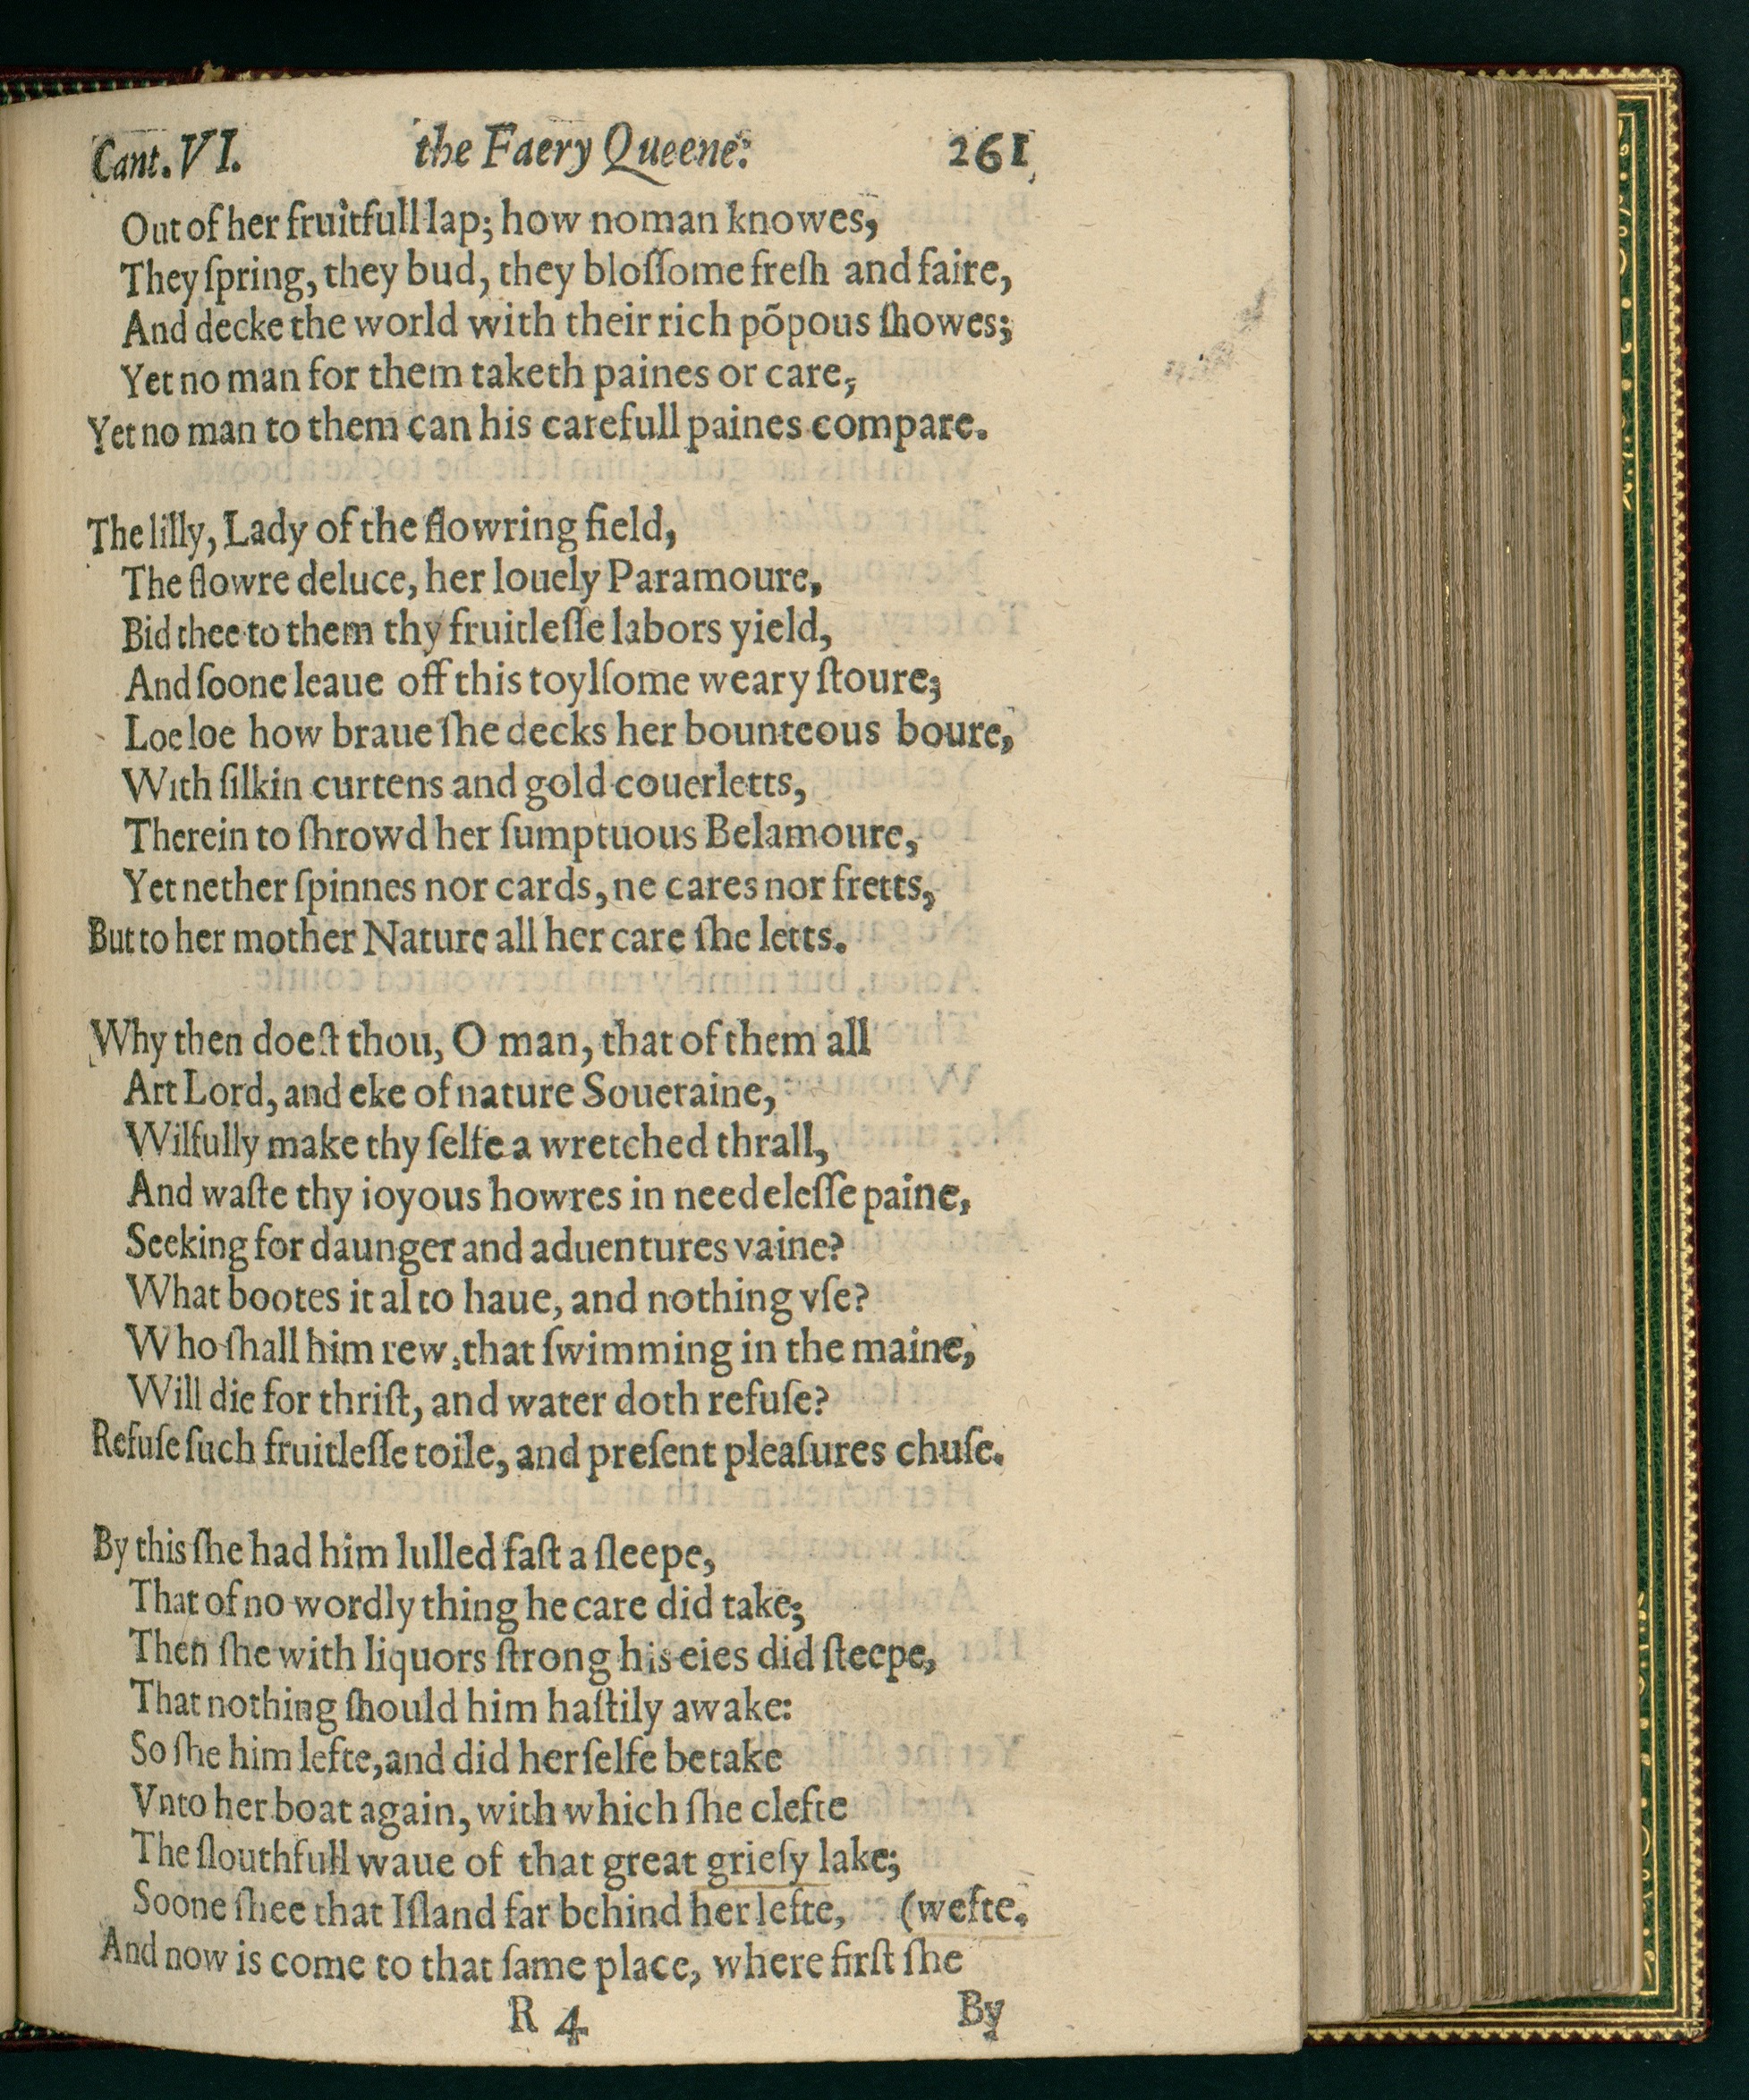 Cant.VI. the Faery Queene. 261
Out of her fruitfull lap; how noman knowes,
They ſpring, they bud, they bloſſome freſh and faire,
And decke the world with their rich põpous ſhowes;
Yet no man for them taketh paines or care,
Yet no man to them can his carefull paines compare.
The lilly, Lady of the flowring field,
The flowre deluce, her louely Paramoure,
Bid thee to them thy fruitleſſe labors yield,
And ſoone leaue off this toylſome weary ſtoure;
Loe loe how braue ſhe decks her bounteous boure,
With ſilkin curtens and gold couerletts,
Therein to ſhrowd her ſumptuous Belamoure,
Yet nether ſpinnes nor cards, ne cares nor fretts,
But to her mother Nature all her care ſhe letts.
Why then doeſt thou, O man, that of them all
Art Lord, and eke of nature Soueraine,
Wilfully make thy ſelfe a wretched thrall,
And waſte thy ioyous howres in needeleſſe paine,
Seeking for daunger and aduentures vaine?
What bootes it al to haue, and nothing vſe?
Who ſhall him rew, that ſwimming in the maine,
Will die for thriſt, and water doth refuſe?
Refuſe ſuch fruitleſſe toile, and preſent pleaſures chuſe.
By this ſhe had him lulled faſt a ſleepe,
That of no wordly thing he care did take;
Then ſhe with liquors ſtrong his eies did ſteepe,
That nothing ſhould him haſtily awake:
So ſhe him lefte, and did her ſelfe betake
Vnto her boat again, with which ſhe clefte
The ſlouthfull waue of that great grieſy lake;
Soone ſhee that Iſland far behind her lefte, (wefte.
And now is come to that ſame place, where firſt ſhe
R 4 By